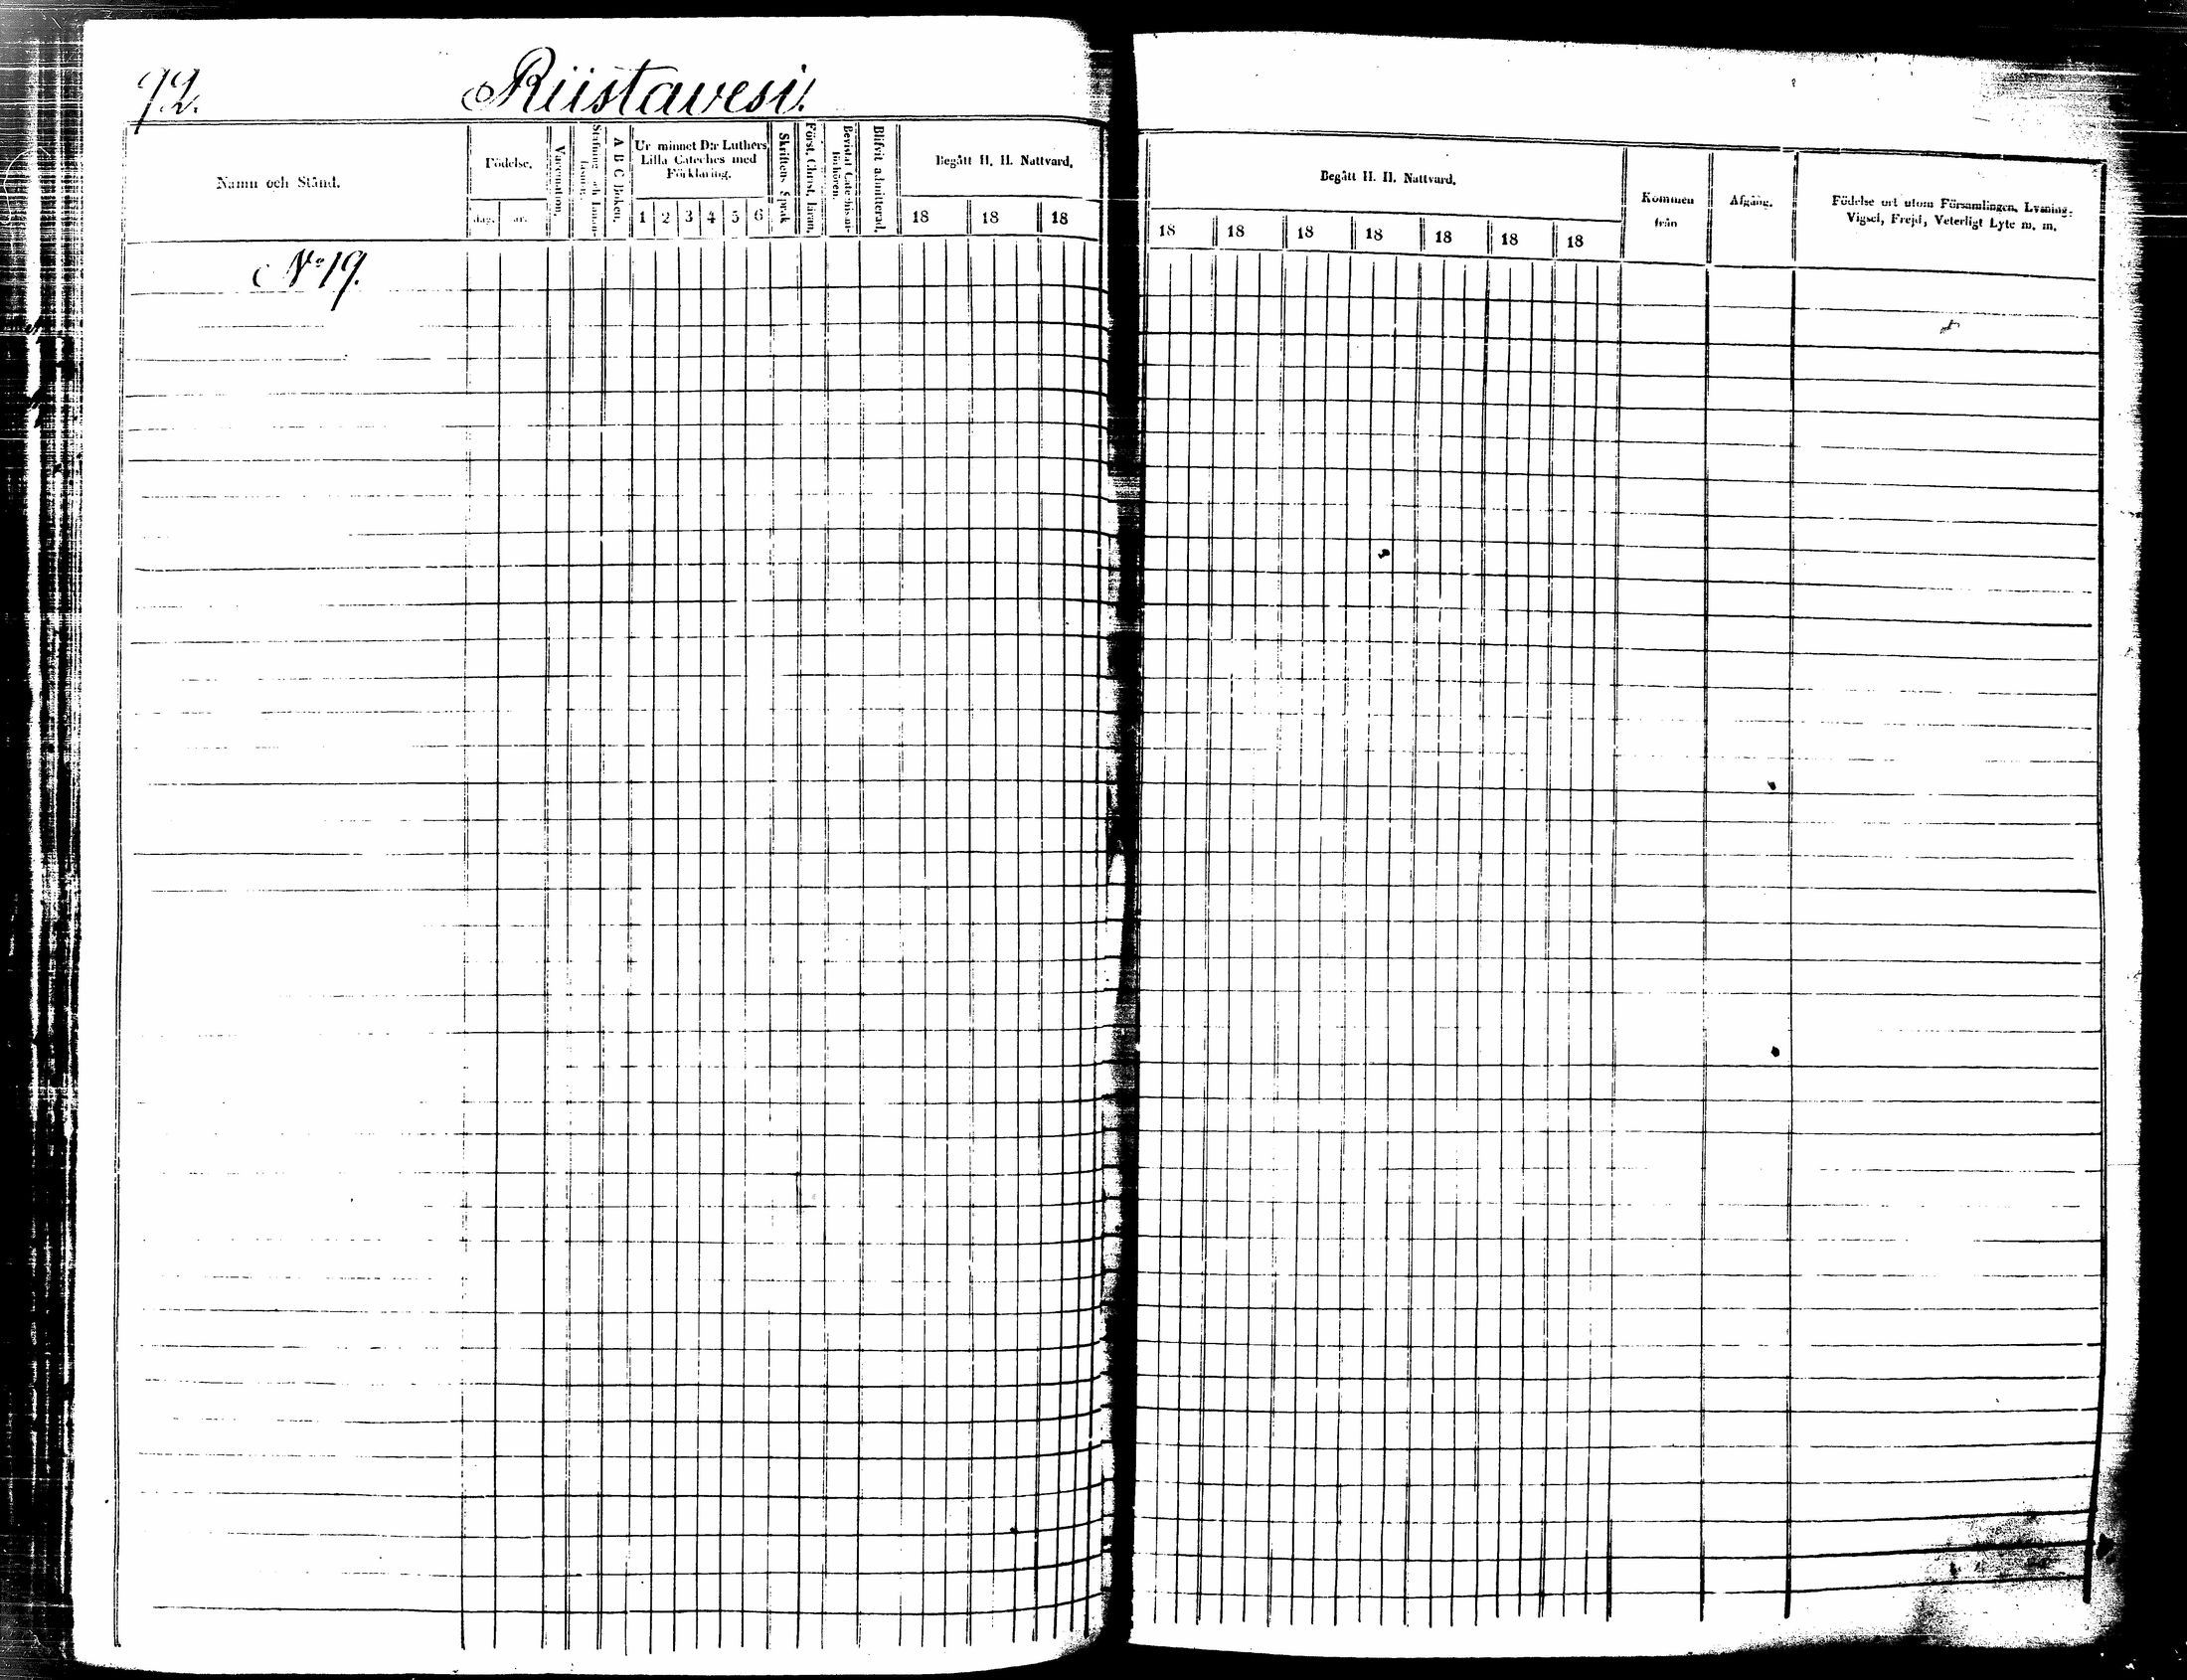 92.
Riistavesi.
Namn och Stånd.
Födelse.
dag.
år.
Vaccination.
Stafning och Innan-
läsning.
A B C Boken.
Ur minnet D:r Luthers
Lilla Cateches med
Förklaring.
1 2 3 4 5 6
Skriftens Språk
Först. Christ. läran.
Bevistat Catechismi-
förhören.
Blifvit admitterad.
Begått H. H. Nattvard.
18 18 18
Begått H. H. Nattvard.
18 18 18 18 18 18 18
Kommen
från
Afgång.
Födelse ort utom Församlingen, Lysning,
Vigsel, Frejd, Veterligt Lyte m. m.
No 19.